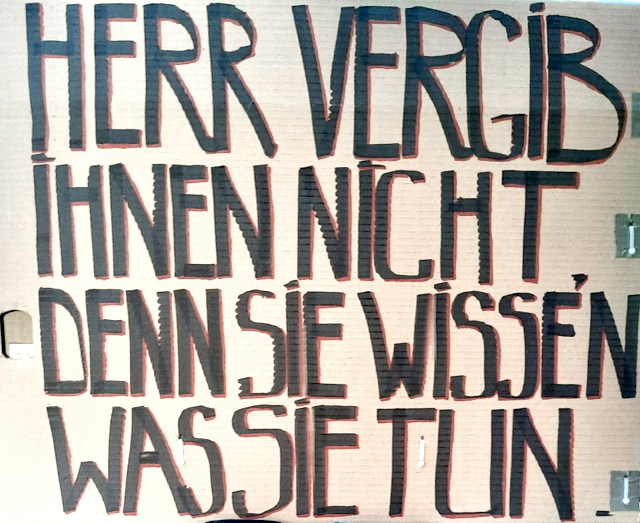 HERR VERGIB
IHNEN NICHT
DENN SIE WISSEN
WAS SIE TUN